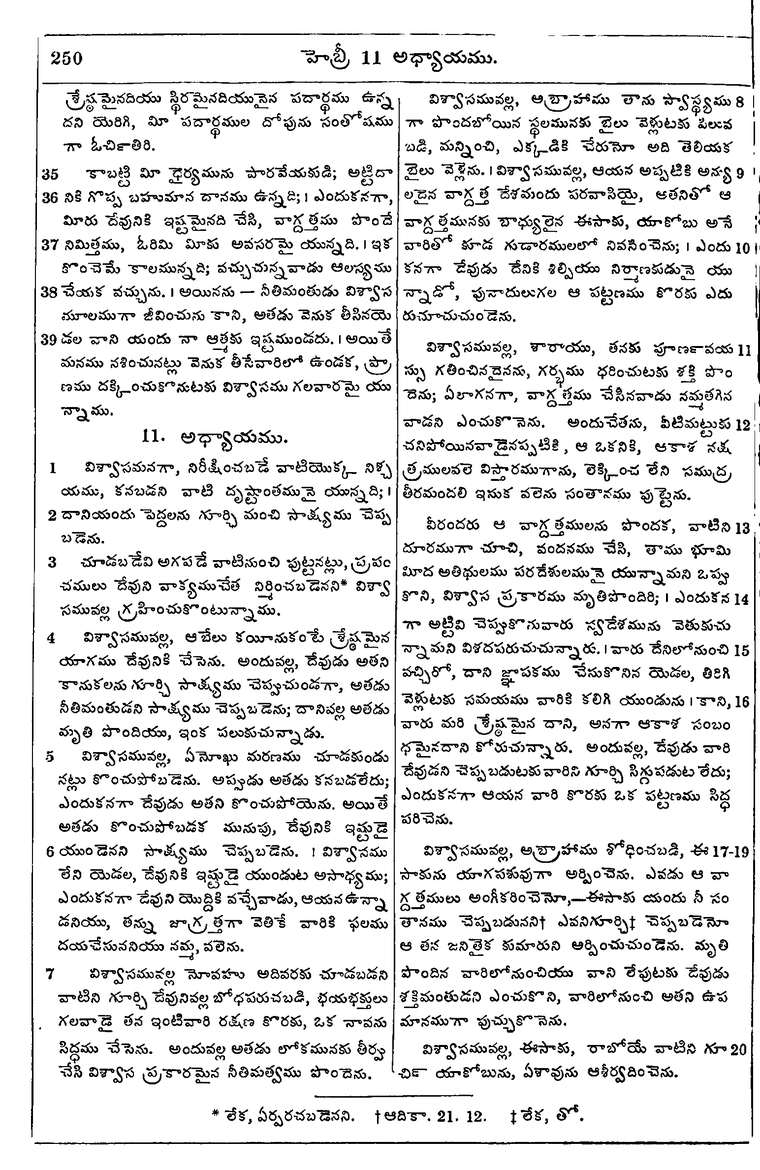 250
హెబ్రీ 11 అధ్యాయము.
శ్రేష్ఠమైనదియు స్థిరమైనదియునైన పదార్థము ఉన్న
దని యెరిగి, మీ పదార్థముల దోపును సంతోషము
గా ఓచికొతిరి.
35 కాబట్టి మీ ధైర్యమును పారవేయకుడి; అట్టిదా
36 నికి గొప్ప బహుమాన దానము ఉన్నది; । ఎందుకనగా,
మీరు దేవునికి ఇష్టమైనది చేసి, వాగ్దత్తము పొందే
37 నిమిత్తము, ఓరిమి మీకు అవసరమై యున్నది. । ఇక
కొంచెమే కాలమున్నది; వచ్చుచున్నవాడు ఆలస్యము
38 చేయక వచ్చును. । అయినను — నీతిమంతుడు విశ్వాస
మూలముగా జీవించును కాని, అతడు వెనుక తీసినయె
39 డల వాని యందు నా ఆత్మకు ఇష్టముండదు. । అయితే
మనము నశించునట్లు వెనుక తీసేవారిలో ఉండక, ప్రా
ణము దక్కించుకొనుటకు విశ్వాసము గలవారమై యు
న్నాము.
11. అధ్యాయము.
1 విశ్వాసమనగా, నిరీక్షించబడే వాటియొక్క నిశ్చ
యము, కనబడని వాటి దృష్టాంతమునై యున్నది; ।
2 దానియందు పెద్దలను గూర్చి మంచి సాక్ష్యము చెప్ప
బడెను.
3 చూడబడేవి అగపడే వాటినుంచి పుట్టనట్లు, ప్రపం
చములు దేవుని వాక్యముచేత నిర్మించబడెనని* విశ్వా
సమువల్ల గ్రహించుకొంటున్నాము.
4 విశ్వాసమువల్ల, ఆబేలు కయీనుకంటే శ్రేష్ఠమైన
యాగము దేవునికి చేసెను. అందువల్ల, దేవుడు అతని
కానుకలను గూర్చి సాక్ష్యము చెప్పుచుండగా, అతడు
నీతిమంతుడని సాక్ష్యము చెప్పబడెను; దానివల్ల అతడు
మృతి పొందియు, ఇంక పలుకుచున్నాడు.
5 విశ్వాసమువల్ల, ఏనోఖు మరణము చూడకుండు
నట్లు కొంచుపోబడెను. అప్పుడు అతడు కనబడలేదు;
ఎందుకనగా దేవుడు అతని కొంచుపోయెను. అయితే
అతడు కొంచుపోబడక మునుపు, దేవునికి ఇష్టుడై
6 యుండెనని సాక్ష్యము చెప్పబడెను. । విశ్వాసము
లేని యెడల, దేవునికి ఇష్టుడై యుండుట అసాధ్యము;
ఎందుకనగా దేవుని యొద్దికి వచ్చేవాడు, ఆయన ఉన్నా
డనియు, తన్ను జాగ్రత్తగా వెతికే వారికి ఫలము
దయచేసుననియు నమ్మ, వలెను.
7 విశ్వాసమువల్ల నోవహు అదివరకు చూడబడని
వాటిని గూర్చి దేవునివల్ల బోధపరుచబడి, భయభక్తులు
గలవాడై తన ఇంటివారి రక్షణ కొరకు, ఒక నావను
సిద్ధము చేసెను. అందువల్ల అతడు లోకమునకు తీర్పు
చేసి విశ్వాస ప్రకారమైన నీతిమత్వము పొందెను.
విశ్వాసమువల్ల, అబ్రాహాము తాను స్వాస్థ్యము 8
గా పొందబోయిన స్థలమునకు బైలు వెళ్లుటకు పిలువ
బడి, మన్నించి, ఎక్కడికి చేరునో అది తెలియక
బైలు వెళ్లెను. । విశ్వాసమువల్ల, ఆయన అప్పటికి అన్య 9
లదైన వాగ్దత్త దేశమందు పరవాసియై, అతనితో ఆ
వాగ్దత్తమునకు బాధ్యులైన ఈసాకు, యాకోబు అనే
వారితో కూడ గుడారములలో నివసించెను; । ఎందు 10
కనగా దేవుడు దేనికి శిల్పియు నిర్మాణకుడునై యు
న్నాడో, పునాదులుగల ఆ పట్టణము కొరకు ఎదు
రుచూచుచుండెను.
విశ్వాసమువల్ల, శారాయు, తనకు పూర్ణవయ 11
స్సు గతించినదైనను, గర్భము ధరించుటకు శక్తి పొం
దెను; ఏలాగనగా, వాగ్దత్తము చేసినవాడు నమ్మతగిన
వాడని ఎంచుకొనెను. అందుచేతను, వీటిమట్టుకు 12
చనిపోయినవాడైనప్పటికి, ఆ ఒకనికి, ఆకాశ నక్ష
త్రములవలె విస్తారముగాను, లెక్కించ లేని సముద్ర
తీరమందలి ఇసుక వలెను సంతానము పుట్టెను.
వీరందరు ఆ వాగ్దత్తములను పొందక, వాటిని 13
దూరముగా చూచి, వందనము చేసి, తాము భూమి
మీద అతిథులము పరదేశులమునై యున్నామని ఒప్పు
కొని, విశ్వాస ప్రకారము మృతిపొందిరి; । ఎందుకన 14
గా అట్టివి చెప్పుకొనువారు స్వదేశమును వెతుకుచు
న్నామని విశదపరుచుచున్నారు. । వారు దేనిలోనుంచి 15
వచ్చిరో, దాని జ్ఞాపకము చేసుకొనిన యెడల, తిరిగి
వెళ్లుటకు సమయము వారికి కలిగి యుండును । కాని, 16
వారు మరి శ్రేష్ఠమైన దాని, అనగా ఆకాశ సంబం
ధమైనదాని కోరుచున్నారు. అందువల్ల, దేవుడు వారి
దేవుడని చెప్పబడుటకు వారిని గూర్చి సిగ్గుపడుట లేదు;
ఎందుకనగా ఆయన వారి కొరకు ఒక పట్టణము సిద్ధ
పరిచెను.
విశ్వాసమువల్ల, అబ్రాహాము శోధించబడి, ఈ 17-19
సాకును యాగపశువుగా అర్పించెను. ఎవడు ఆ వా
గ్దత్తములు అంగీకరించెనో,—ఈసాకు యందు నీ సం
తానము చెప్పబడునని† ఎవనిగూర్చి‡ చెప్పబడెనో
ఆ తన జనితైక కుమారుని అర్పించుచుండెను. మృతి
పొందిన వారిలోనుంచియు వాని లేపుటకు దేవుడు
శక్తిమంతుడని ఎంచుకొని, వారిలోనుంచి అతని ఉప
మానముగా పుచ్చుకొనెను.
విశ్వాసమువల్ల, ఈసాకు, రాబోయే వాటిని గూ 20
ర్చి యాకోబును, ఏశావును ఆశీర్వదించెను.
* లేక, ఏర్పరచబడెనని. † ఆదికా. 21. 12. ‡ లేక, తో.